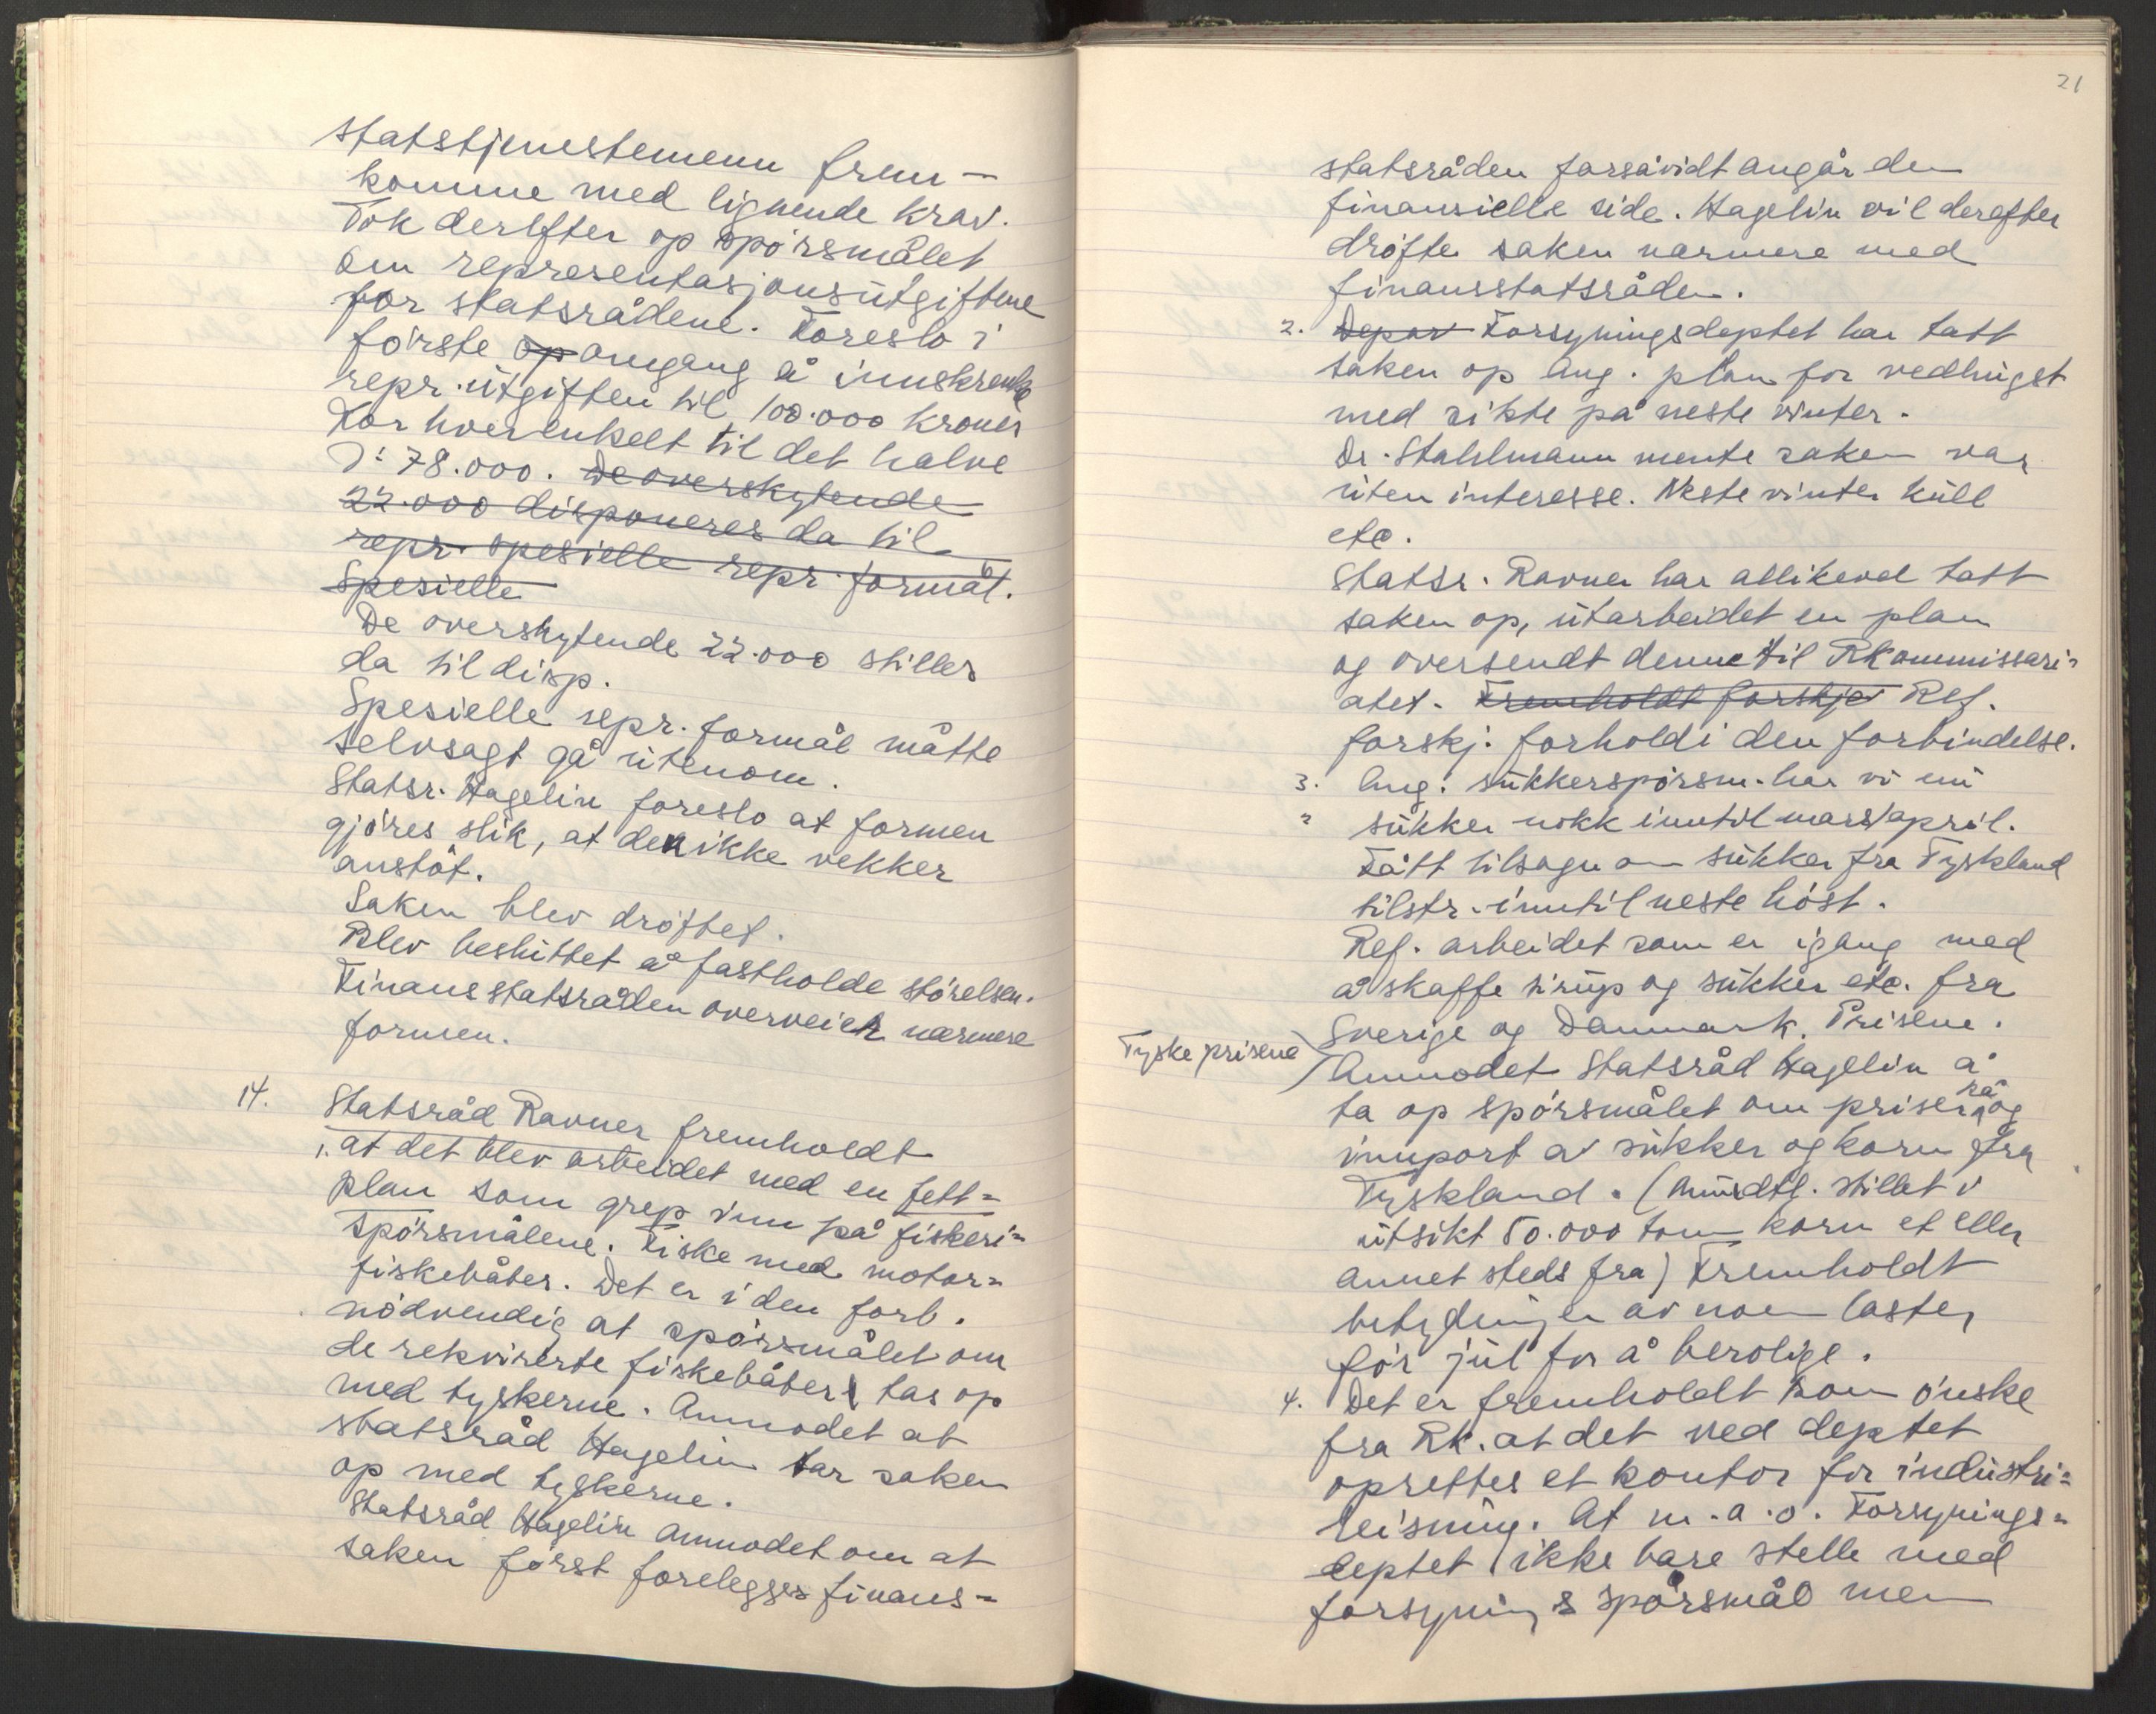 statstjenestemenn frem-
komme med lignende krav.
Tok derefter op spørsmålet
om representasjonsutgiftene
for statsrådene. Foreslo i
første op omgang å innskrenke
repr.utgiften til 100.000 kroner
For hver enkelt til det halve
ɔ: 78.000. De overskytende
22.000 disponeres da til
repr. spesielle repr. formål.
Spesielle
De overskytende 22.000 stilles
da til disp.
Spesielle repr. formål måtte
selvsagt gå utenom.
Statsr. Hagelin foreslo at formen
gjøres slik, at den ikke vekker
anstøt.
Saken blev drøftet.
Blev besluttet å fastholde størelsen.
Finansstatsråden overveier nærmere
formen.
14. Statsråd Ravner fremholdt
1. at det blev arbeidet med en fett=
plan som grep inn på fiskeri=
spørsmålene. Fiske med motor=
fiskebåter. Det er i den forb.
nødvendig at spørsmålet om
de rekvirerte fiskebåter tas op
med tyskerne. Anmodet at
statsråd Hagelin tar saken
op med tyskerne.
Statsråd Hagelin anmodet om at
saken først forelegges finans=
21
statsråden forsåvidt angår den
finansielle side. Hagelin vil derefter
drøfte saken nærmere med
finansstatsråden.
2. Depar Forsyningsdeptet har tatt
saken op ang. plan for vedhugst
med sikte på neste vinter.
Dr. Stahlmann mente saken var
uten interesse. Neste vinter kull
etc.
Statsr. Ravner har allikevel tatt
saken op, utarbeidet en plan
og oversendt denne til Rkommissari=
atet. Fremholdt forskje Ref.
forskj. forhold i den forbindelse.
3. Ang. sukkerspørsm. har vi nu
sukker nokk inntil mars/april.
Fått tilsagn om sukker fra Tyskland
tilstr. inntil neste høst.
Ref. arbeidet som er igang med
å skaffe sirup og sukker etc. fra
Sverige og Danmark. Prisene.
Tyske prisene
Anmodet Statsråd Hagelin å
ta op spørsmålet om prisen på og
import av sukker og korn fra
Tyskland. (Mundtl. stillet i
utsikt 50.000 tonn korn et eller
annet steds fra) Fremholdt
betydningen av noen laster
før jul for å berolige.
4. Det er fremholdt som ønske
fra Rk. at det ved deptet
oprettes et kontor for industri=
reisning. At m.a.o. Forsynings=
deptet ikke bare stelle med
forsyningsspørsmål men